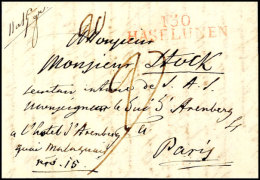 130
HASELUNEN
A Monsieur
Monsieur Stock
secretaire intime de S. A. S.
monseigneur le Duc d'Arenberg
a l'hotel d'Arenberg
quai Malaquais
nro. 15
Paris